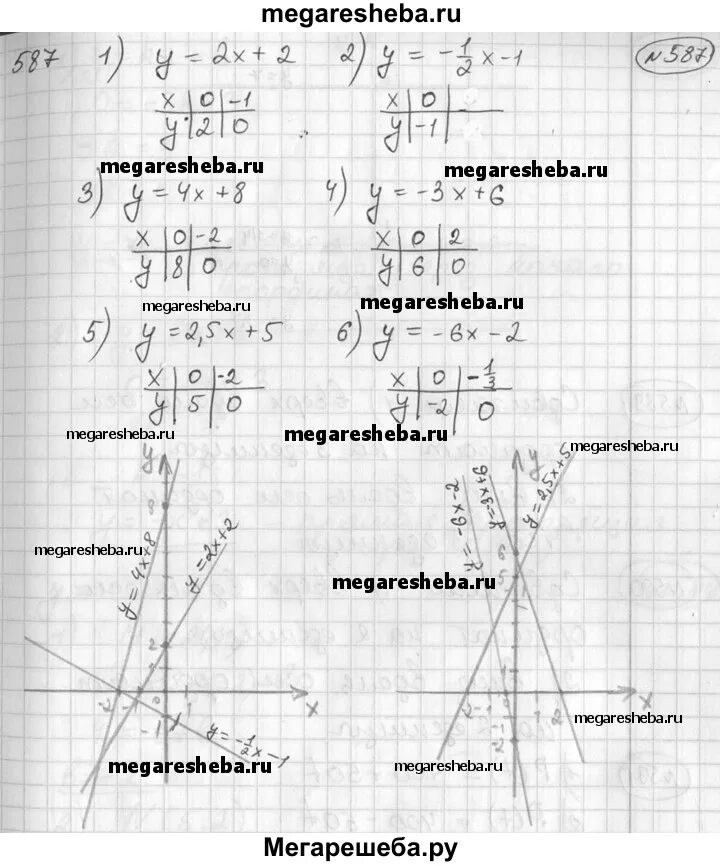 megaresheba.ru
587 1) y = 2x + 2 2) y = -1/2 x - 1 №587
x | 0 | -1 x | 0 |
y | 2 | 0 y | -1 |
megaresheba.ru megaresheba.ru
3) y = 4x + 8 4) y = -3x + 6
x | 0 | -2 x | 0 | 2
y | 8 | 0 y | 6 | 0
megaresheba.ru megaresheba.ru
5) y = 2,5x + 5 6) y = -6x - 2
x | 0 | -2 x | 0 | -1/3
y | 5 | 0 y | -2 | 0
megaresheba.ru megaresheba.ru megaresheba.ru
y
8
y = 4x+8
y = 2x+2
2
-2 -1 0 1 x
-1
y = -1/2 x - 1
y
y = -6x-2
y = -3x+6
y = 2,5x+5
6
5
-2 -1 0 1 2 x
-1
-2
megaresheba.ru megaresheba.ru
megaresheba.ru megaresheba.ru
Мегарешеба.ру